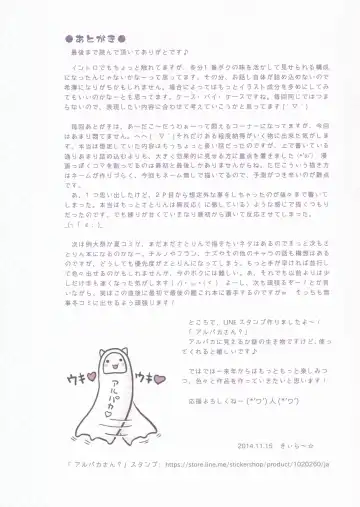 ●あとがき●
最後まで読んで頂いてありがとです♪
イントロでもちょっと触れてますが、多分1番ボクの味を活かして見せられる構成
になったんじゃないかなーって思ってます。その分、お話し自体が詰め込めないので
希薄になりがちかもしれません。場合によってはもっとイラスト成分を多めにしてみ
てもいいのかなーとも思ってます。ケース・バイ・ケースですね。毎回同じではつまら
ないので、表現したい内容に合わせて考えていこうかと思ってます(´▽｀)
毎回あとがきは、あーだこーだうわぁーって超えるコーナーになってますが、今回
はあまり荷てません。へへ(´▽｀)それだけある程度納得がいく物に出来た気がしま
す。本当は想定していた内容はもっともっと長い話だったのですが、上で書いている
通りあまり詰め込むよりも、大きく効果的に見せる方に重点を置きました(*'ω')　漫
画っぽくコマを割ってるのは最初と最後しかありませんからね。ただこういう描き方
はネームが作りづらく、今回もネーム無しで描いてるので、手間がつき辛いのが難点
です。
あ、1つ思い出したけど、2P目から想定外な事をしちゃったのが後々まで響いて
しまった。本当はもっとさとりんは無反応(に徹している)ような感じで描くつもり
だったのです。でも縛りが甘くていきなり最初から濡れて反応させてしまった。
_(┐「ε:)_
次は例大祭か夏コミか、まだまださとりんで描きたいネタはあるのできっと次もさ
とりん本になるのかなー。チルノやフラン、ナズやもの他のキャラの話も構想はある
のですが、どうしても優先度がさとりんになってしまう。もっと手が早ければ並行し
て色々出せるのかもしれませんが、今のボクには難しい。あ、それでも以前よりは少
しだけ本も速くなった気がします(ﾉ)・ω・(ヾ)　よーし、次も頑張るぞー！とか言
いながら、実はこの直後に最初で最後の艦これ本に着手するのですがw　そっちも無
事冬コミに出せるよう頑張ります！
ところで、LINEスタンプ作りましたよ～！
「アルパカさん？」
アルパカに見えるか謎の生き物ですけど、使っ
てくれると嬉しいです♪
ではでは一来年からはもっともっと楽しみつ
つ、色々と作品を作っていきたいと思います！
応援よろしくねー(*'▽')人(*'▽')
2014.11.15　きぃら～☆
ウキ♥
アルパカ
ウキ♥
「アルパカさん？」スタンプ： https://store.line.me/stickershop/product/1020260/ja